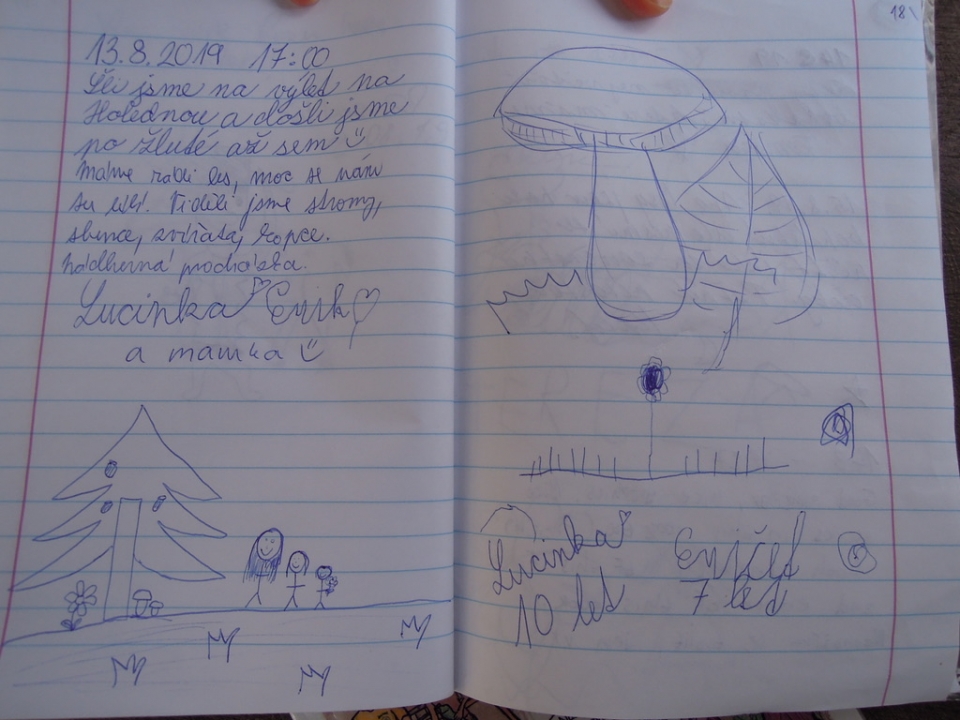 13.8.2019 17:00
Šli jsme na výlet na
Holednou a došli jsme
po žluté až sem
máme rádi les, moc se nám
tu líbí. Viděli jsme stromy,
slunce, zvířata, kopce.
nádherná procházka.
Lucinka Erik
a mamka
181
Lucinka Eríček
10 let 7 let